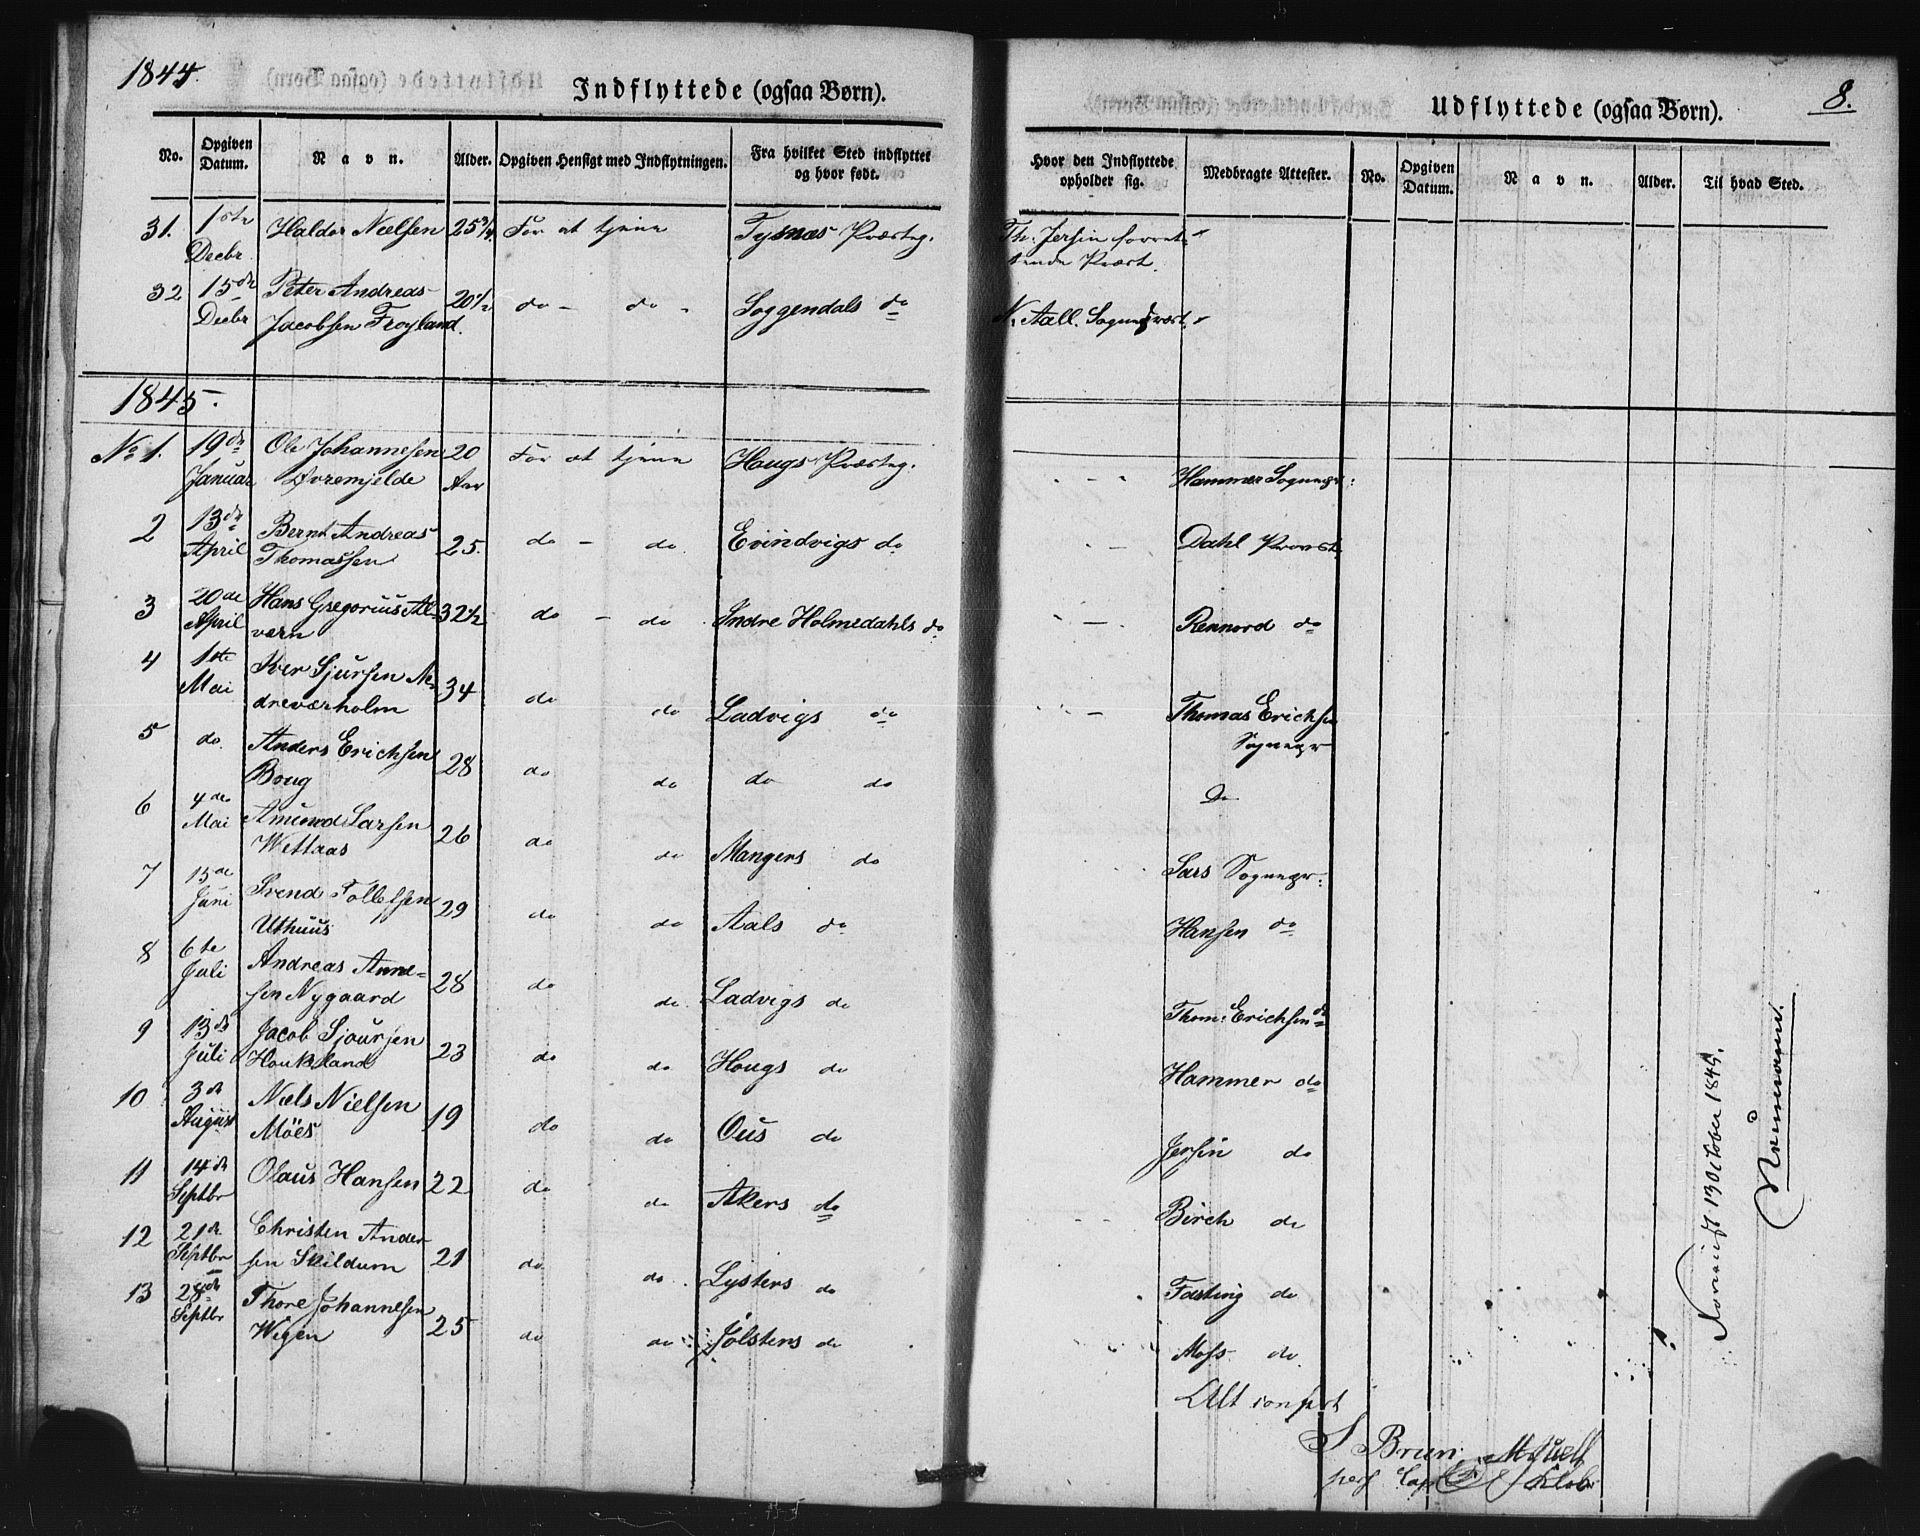 1844.
Indflyttede (ogsaa Børn).
No. Opgiven Datum. Navn. Alder. Opgiven Hensigt med Indflytningen. Fra hvilket Sted indflyttet og hvor født.
31. 1ste Decbr. Haldor Nielsen 25 3/4 For at tjene Tysnæs Præsteg.
32 15de Decbr Peter Andreas Jacobsen Frøyland. 20 1/2 do - do - Soggendals do
1845.
No 1. 19de Januar Ole Johannesen Øvremjelde 20 Aar For at tjene Hougs Præsteg.
2 13de April Bernt Andreas Thomassen 25. do - do Evindvigs do
3 20de April Hans Gregorius Alværn 32 1/2 do - do Indre Holmedahls do
4 1ste Mai Iver Sjursen Nedreværholm 34 do do Ladvigs do
5 do. Anders Erichsen Boug 28 do do do do
6 4de Mai Amund Larsen Wettaas 26 do do Mangers do
7 15de Juni Svend Tollefsen Uthuus 29 do do Aals do
8 6te Juli Andreas Andersen Nygaard 28 do do Ladvigs do
9 13de Juli Jacob Sjoursen Houkeland 23 do do Hougs do
10 3de August Niels Nielsen Möes 19 do do Ous do
11 14de Septbr Olaus Hansen 22 do do Akers do
12 21de Septbr Christen Andersen Skildum 21 do do Lysters do
13 28de Septbr Thore Johannesen Wigen 25 do do Jølsters do
8.
Udflyttede (ogsaa Børn).
Hvor den Indflyttede opholder sig. Medbragte Attester. No. Opgiven Datum. Navn. Alder. Til hvad Sted.
Th. Jersin forrettende Præst.
N. Aall. Sognepræst.
Hammer Sognepr:
Dahl Provst.
Rennord do
Thomas Erichsen Sognepr
Do
Sars Sognepr:
Hansen do
Thom: Erichsen do
Hammer do
Jersin do
Birch do
Fasting do
Moss do
Alt confert
S Brun
pers Cap
13 October 1845.
Neumann.